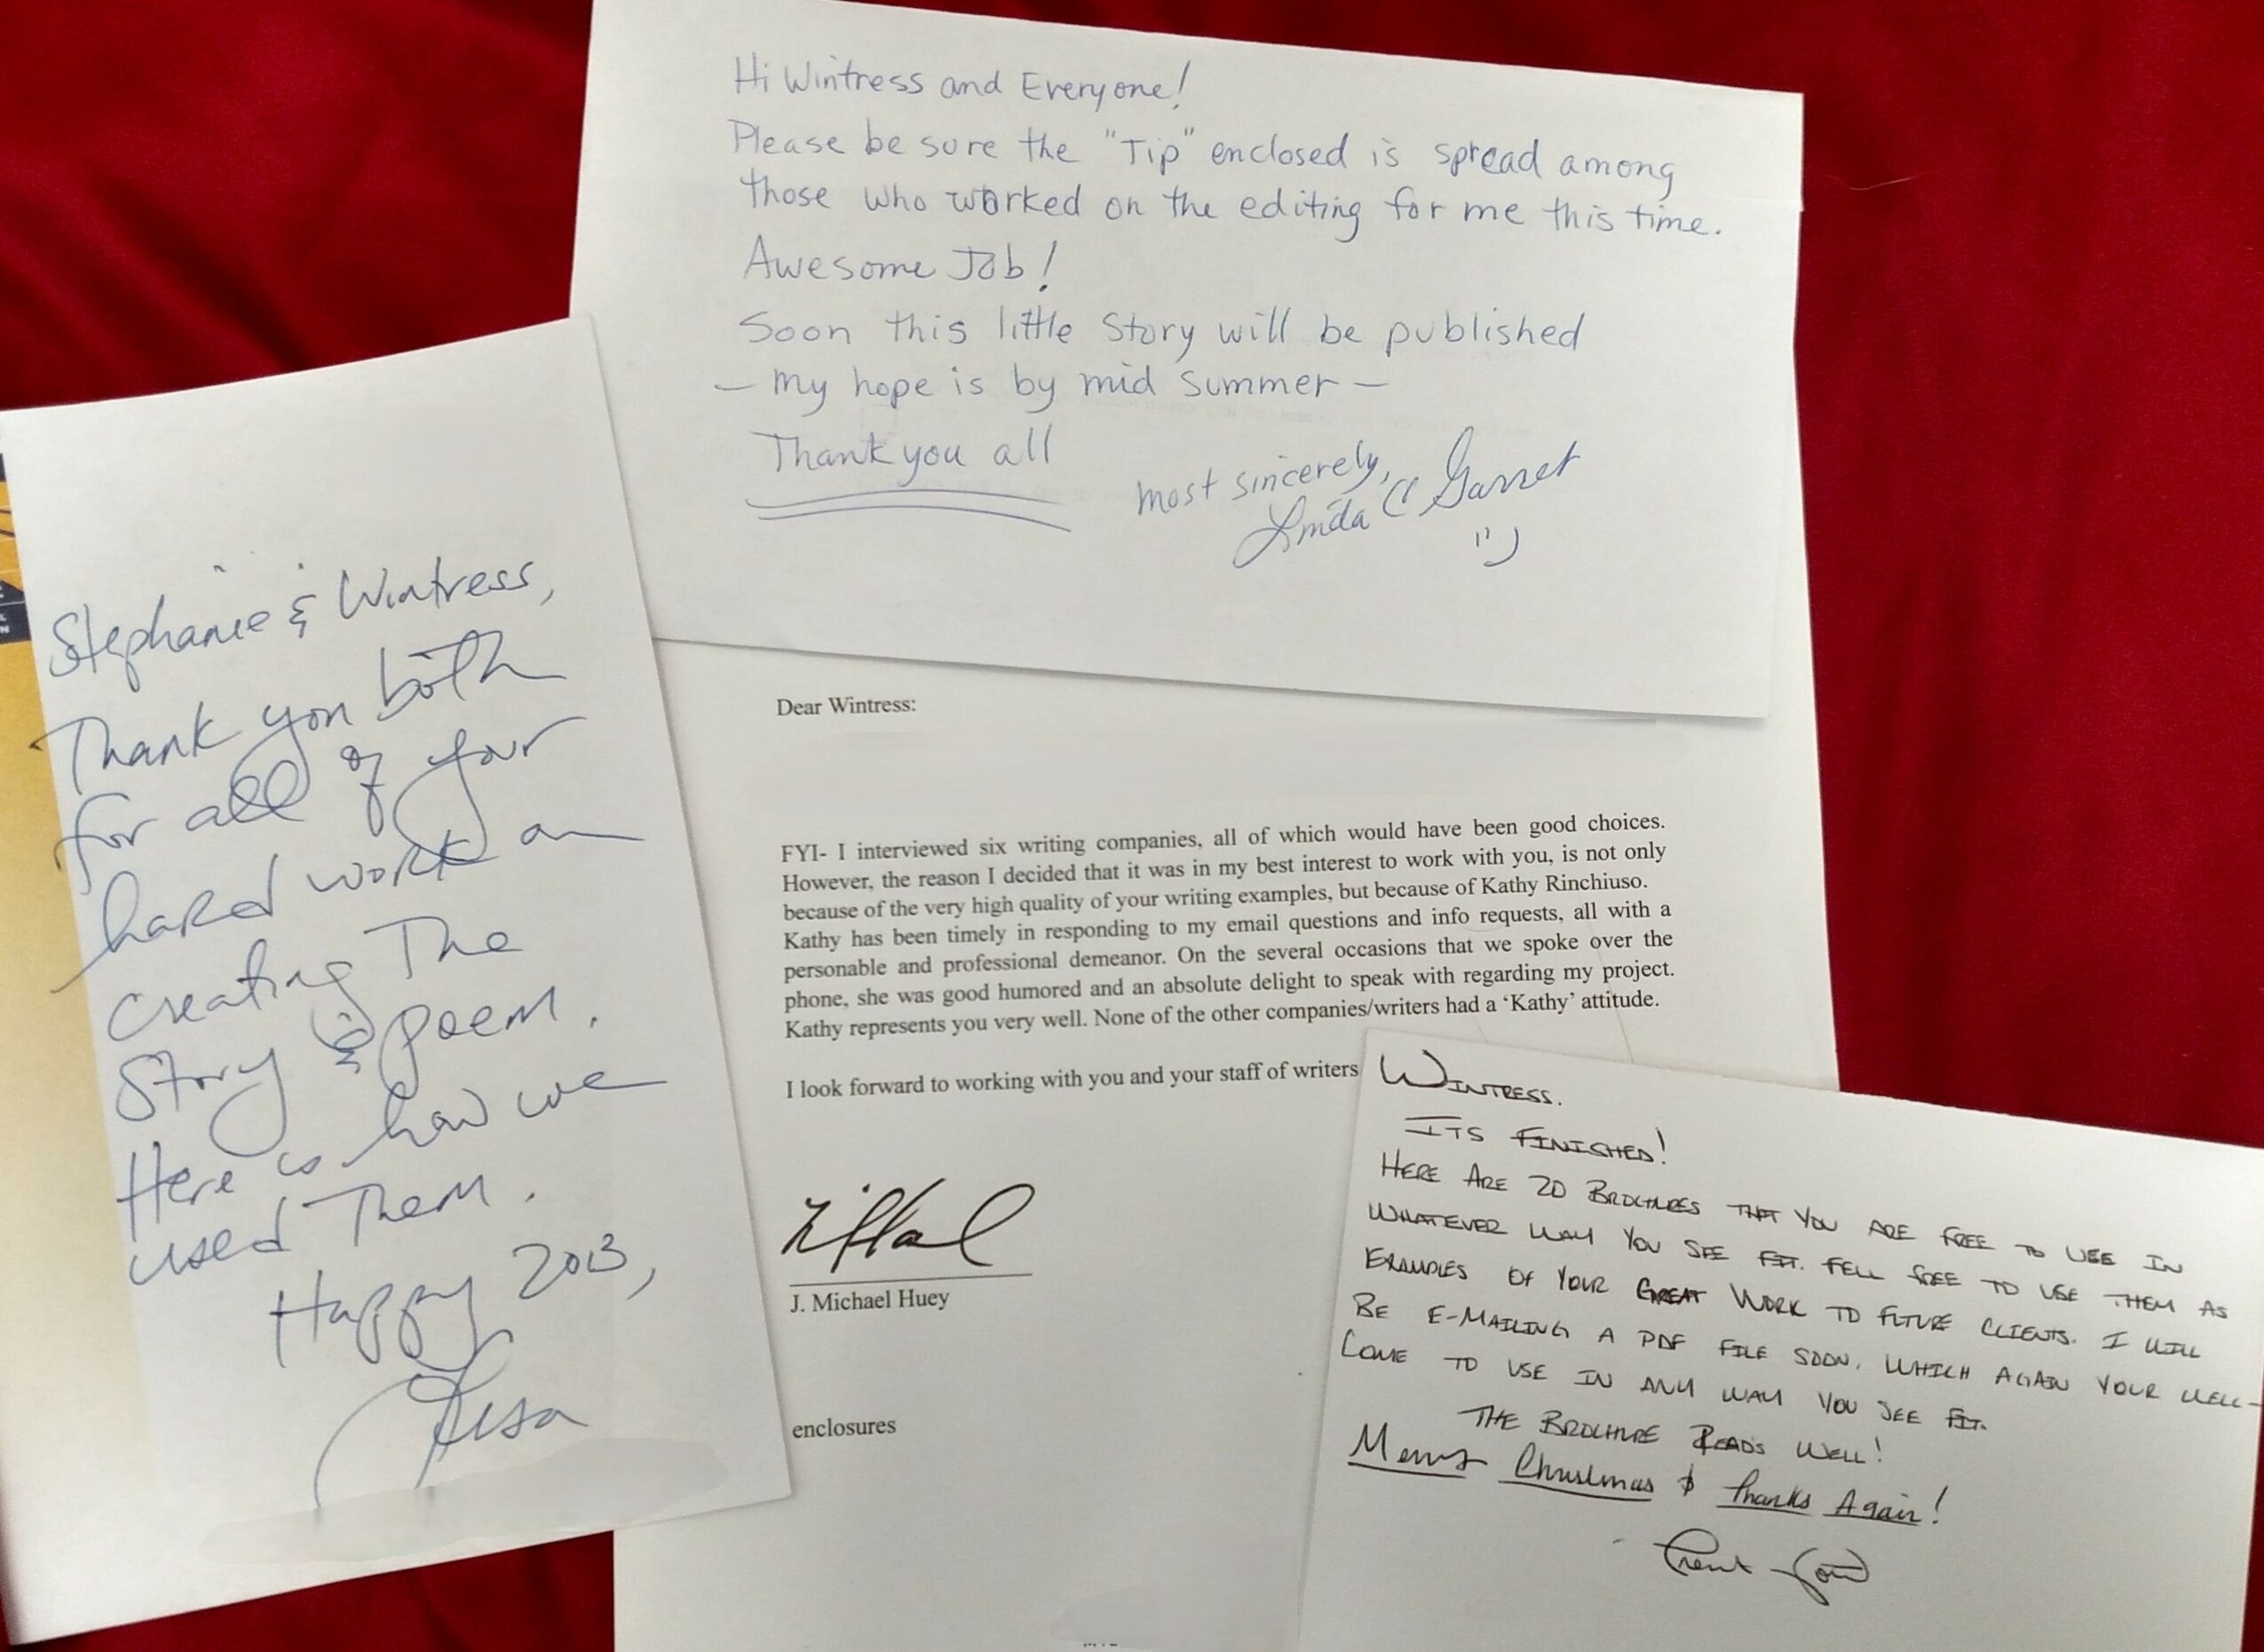 Hi Wintress and Everyone!
Please be sure the "Tip" enclosed is spread among
those who worked on the editing for me this time.
Awesome Job!
Soon this little Story will be published
— my hope is by mid summer —
Thank you all
most sincerely,
Linda C Garret
Stephanie & Wintress,
Thank you both
for all of your
hard work on
creating The
Story & Poem.
Here is how we
used Them.
Happy 2013,
Lisa
Dear Wintress:
FYI- I interviewed six writing companies, all of which would have been good choices.
However, the reason I decided that it was in my best interest to work with you, is not only
because of the very high quality of your writing examples, but because of Kathy Rinchiuso.
Kathy has been timely in responding to my email questions and info requests, all with a
personable and professional demeanor. On the several occasions that we spoke over the
phone, she was good humored and an absolute delight to speak with regarding my project.
Kathy represents you very well. None of the other companies/writers had a ‘Kathy’ attitude.
I look forward to working with you and your staff of writers
J. Michael Huey
enclosures
WINTRESS.
ITS FINISHED!
HERE ARE 20 BROCHURES THAT YOU ARE FREE TO USE IN
WHATEVER WAY YOU SEE FIT. FELL FREE TO USE THEM AS
EXAMPLES OF YOUR GREAT WORK TO FUTURE CLIENTS. I WILL
BE E-MAILING A PDF FILE SOON. WHICH AGAIN YOUR WELL-
COME TO USE IN ANY WAY YOU SEE FIT.
THE BROCHURE READS WELL!
Merry Christmas & Thanks Again!
Trent